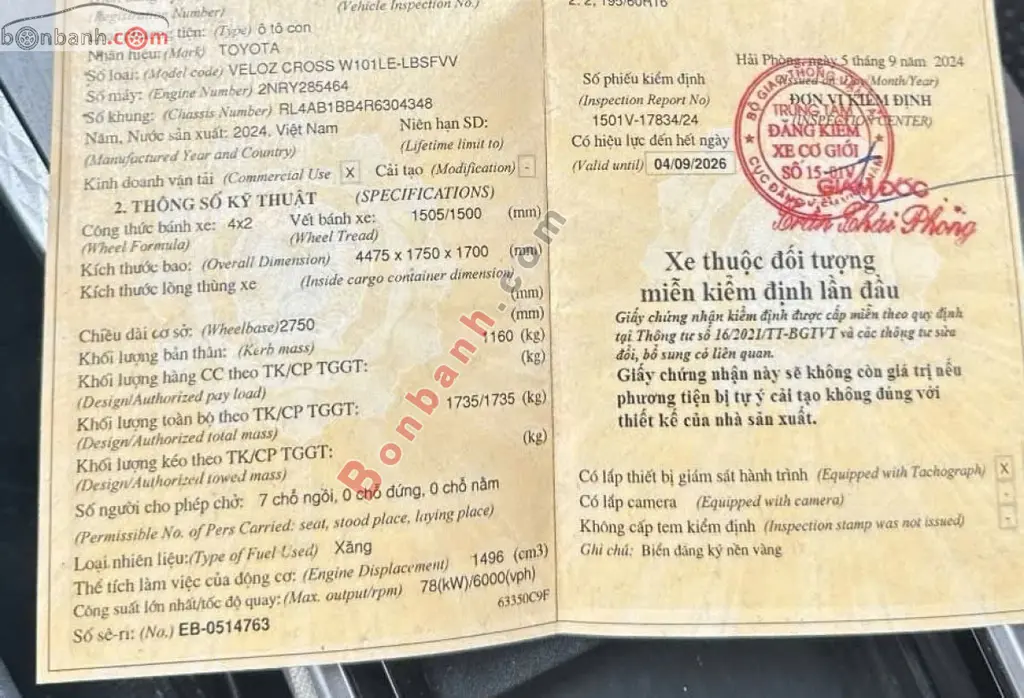 (Vehicle Inspection No.)
(Registration Number)
bonbanh.com
tiện: (Type) ô tô con
Nhãn hiệu: (Mark) TOYOTA
Số loại: (Model code) VELOZ CROSS W101LE-LBSFVV
Số máy: (Engine Number) 2NRY285464
Số khung: (Chassis Number) RL4AB1BB4R6304348
Năm, Nước sản xuất: 2024, Việt Nam Niên hạn SD:
(Manufactured Year and Country) (Lifetime limit to)
Kinh doanh vận tải (Commercial Use X Cải tạo (Modification) -
2. THÔNG SỐ KỸ THUẬT (SPECIFICATIONS)
Công thức bánh xe: 4x2 Vết bánh xe: 1505/1500 (mm)
(Wheel Formula) (Wheel Tread)
Kích thước bao: (Overall Dimension) 4475 x 1750 x 1700 (mm)
Kích thước lòng thùng xe (Inside cargo container dimension)
(mm)
Chiều dài cơ sở: (Wheelbase) 2750 (mm)
Khối lượng bản thân: (Kerb mass) 1160 (kg)
Khối lượng hàng CC theo TK/CP TGGT: (kg)
(Design/Authorized pay load)
Khối lượng toàn bộ theo TK/CP TGGT: 1735/1735 (kg)
(Design/Authorized total mass)
Khối lượng kéo theo TK/CP TGGT: (kg)
(Design/Authorized towed mass)
Số người cho phép chở: 7 chỗ ngồi, 0 chỗ đứng, 0 chỗ nằm
(Permissible No. of Pers Carried: seat, stood place, laying place)
Loại nhiên liệu: (Type of Fuel Used) Xăng
Thể tích làm việc của động cơ: (Engine Displacement) 1496 (cm3)
Công suất lớn nhất/tốc độ quay: (Max. output/rpm) 78(kW)/6000(vph)
63350C9F
Số sê-ri: (No.) EB-0514763
2: 2, 195/60R16
Hải Phòng, ngày 5 tháng 9 năm 2024
(Issued on Day/Month/Year)
Số phiếu kiểm định
(Inspection Report No)
1501V-17834/24
ĐƠN VỊ KIỂM ĐỊNH
(INSPECTION CENTER)
Có hiệu lực đến hết ngày
(Valid until) 04/09/2026
BỘ GIAO THÔNG VẬN TẢI
TRUNG TÂM
ĐĂNG KIỂM
XE CƠ GIỚI
SỐ 15-01V
CỤC ĐĂNG KIỂM VIỆT NAM
GIÁM ĐỐC
Trần Thái Phòng
Xe thuộc đối tượng
miễn kiểm định lần đầu
Giấy chứng nhận kiểm định được cấp miễn theo quy định
tại Thông tư số 16/2021/TT-BGTVT và các thông tư sửa
đổi, bổ sung có liên quan.
Giấy chứng nhận này sẽ không còn giá trị nếu
phương tiện bị tự ý cải tạo không đúng với
thiết kế của nhà sản xuất.
Có lắp thiết bị giám sát hành trình (Equipped with Tachograph) X
Có lắp camera (Equipped with camera) -
Không cấp tem kiểm định (Inspection stamp was not issued) -
Ghi chú: Biển đăng ký nền vàng
Bonbanh.com